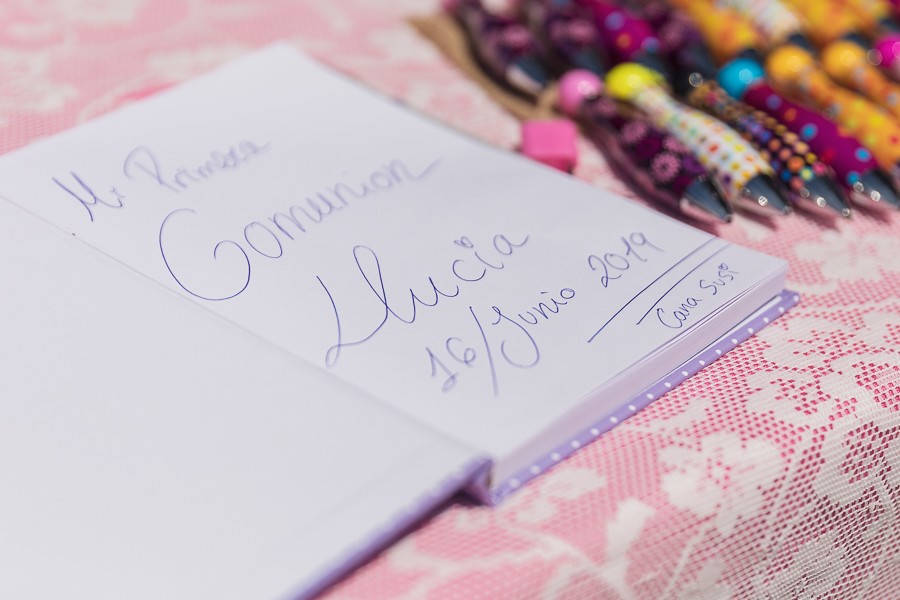 Mi Primera
Comunion
Llucia
16/Junio 2019
Cana Susi